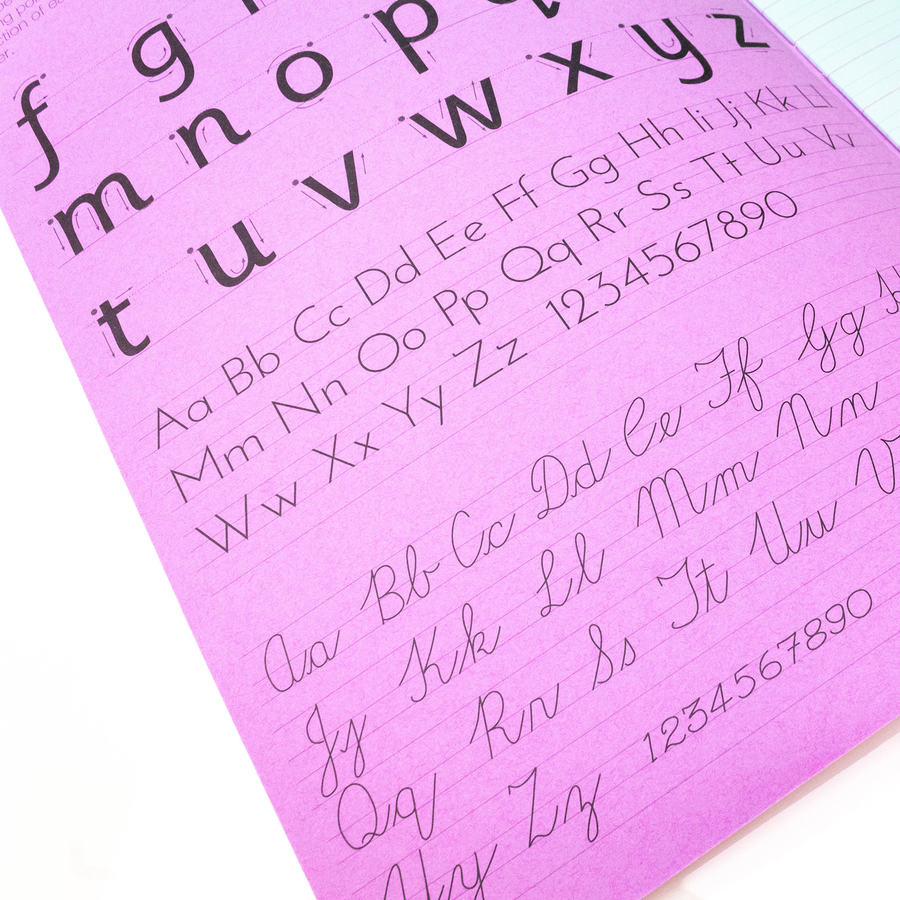 f g
m n o p
t u v w x y z
Aa Bb Cc Dd Ee Ff Gg Hh Ii Jj Kk Ll
Mm Nn Oo Pp Qq Rr Ss Tt Uu Vv
Ww Xx Yy Zz 1234567890
Aa Bb Cc Dd Ee Ff Gg
Jj Kk Ll Mm Nn
Qq Rr Ss Tt Uu V
Yy Zz 1234567890